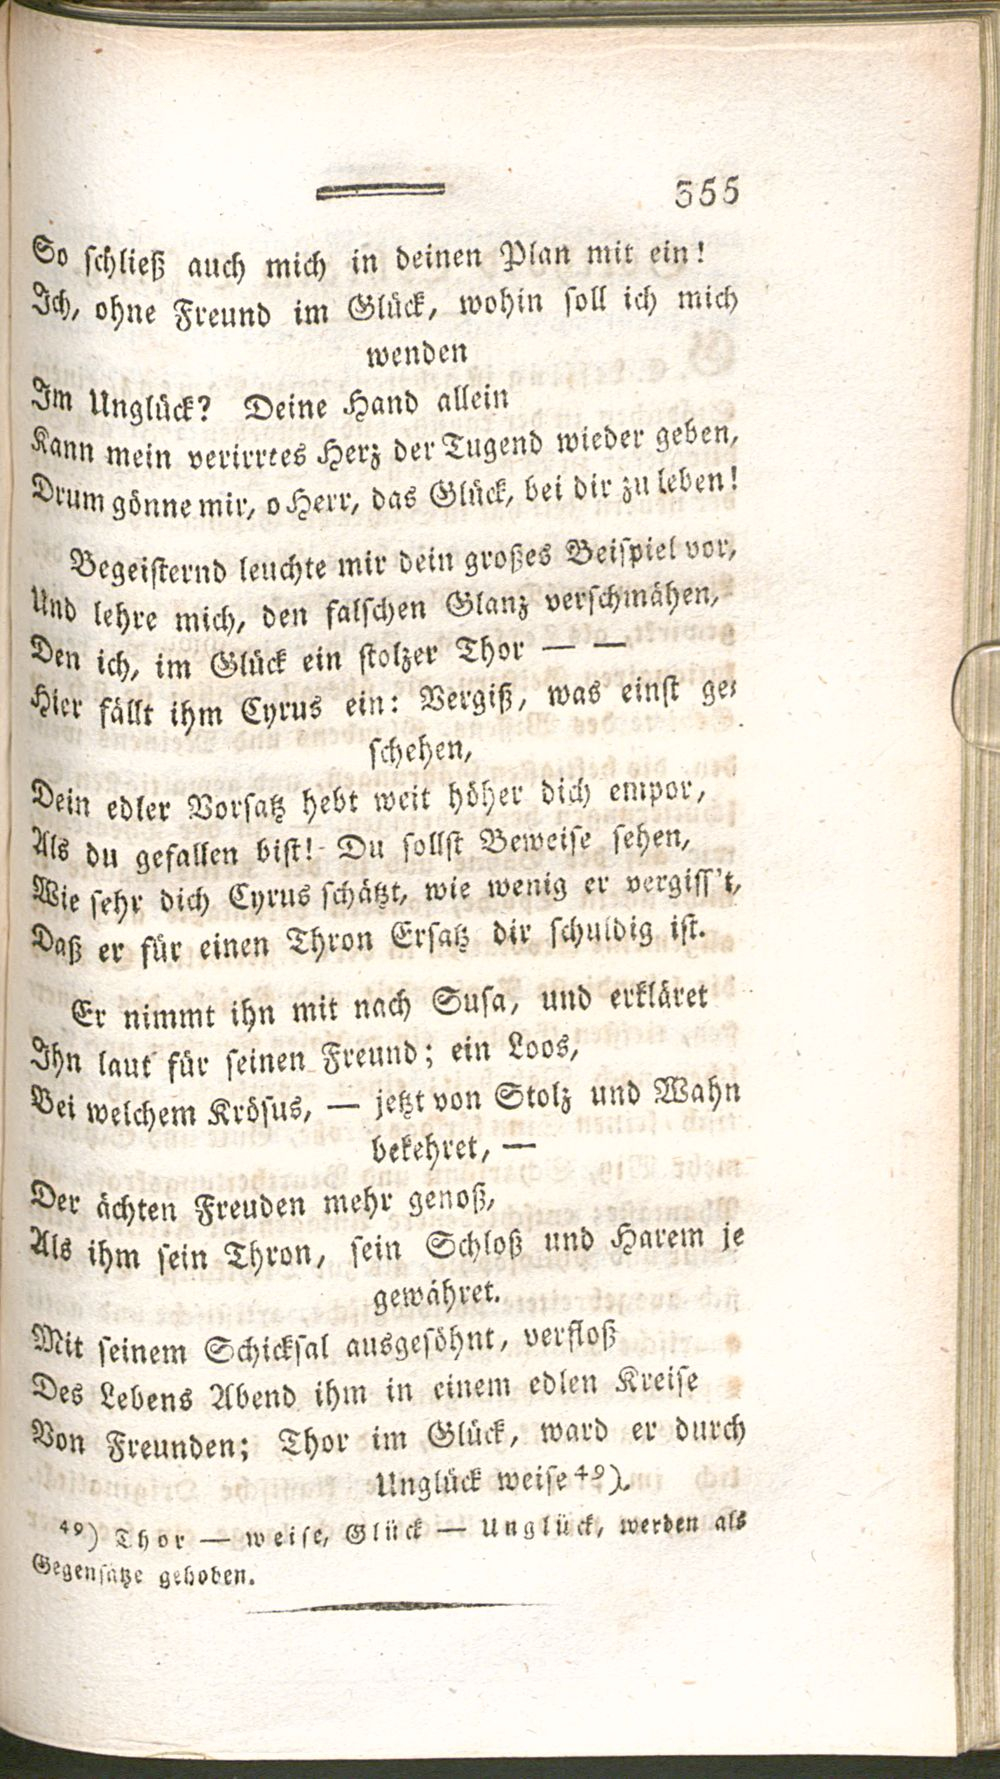 355
So schließ auch mich in deinen Plan mit ein!
Ich, ohne Freund im Glück, wohin soll ich mich
wenden
Im Unglück? Deine Hand allein
Kann mein verirrtes Herz der Tugend wieder geben,
Drum gönne mir, o Herr, das Glück, bei dir zu leben!
Begeisternd leuchte mir dein großes Beispiel vor,
Und lehre mich, den falschen Glanz verschmähen,
Den ich, im Glück ein stolzer Thor — —
Hier fällt ihm Cyrus ein: Vergiß, was einst ge-
schehen,
Dein edler Vorsatz hebt weit höher dich empor,
Als du gefallen bist! Du sollst Beweise sehen,
Wie sehr dich Cyrus schätzt, wie wenig er vergiss't,
Daß er für einen Thron Ersatz dir schuldig ist.
Er nimmt ihn mit nach Susa, und erkläret
Ihn laut für seinen Freund; ein Loos,
Bei welchem Krösus, — jetzt von Stolz und Wahn
bekehret, —
Der ächten Freuden mehr genoß,
Als ihm sein Thron, sein Schloß und Harem je
gewähret.
Mit seinem Schicksal ausgesöhnt, verfloß
Des Lebens Abend ihm in einem edlen Kreise
Von Freunden; Thor im Glück, ward er durch
Unglück weise 49).
49) Thor — weise, Glück — Unglück, werden als
Gegensätze gehoben.